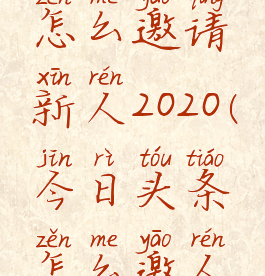 zěn me yāo qǐng
怎么邀请
xīn rén
新人2020(
jīn rì tóu tiáo
今日头条
zěn me yāo rén
怎么邀人